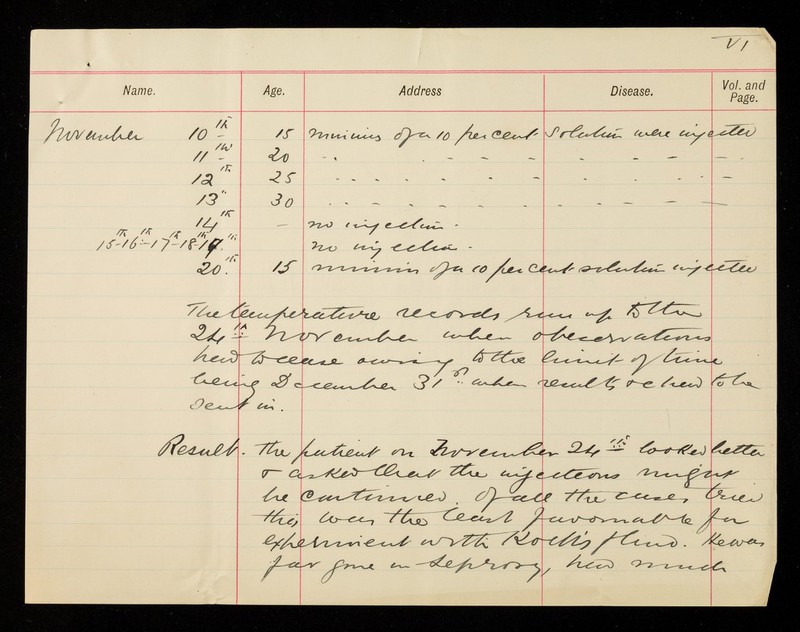 VI
Name. Age. Address Disease. Vol. and Page.
November 10th 15 minims of a 10 per cent solution were injected
11th 20 " - - - - - - - -
12th 25 - - - - - - - - -
13" 30 - - - - - - - - -
14th - no injection.
15th-16th-17th-18th-19.th no injection.
20.th 15 minims of a 10 per cent solution injected
The temperature records run up to the
24th November when observations
had to cease owing to the limit of time
being December 31st. when results &c had to be
sent in.
Result. The patient on November 24th looked better
& asked that the injections might
be continued. Of all the cases tried
this was the least favourable for
experiment with Koch's fluid. He was
far gone in leprosy, had much